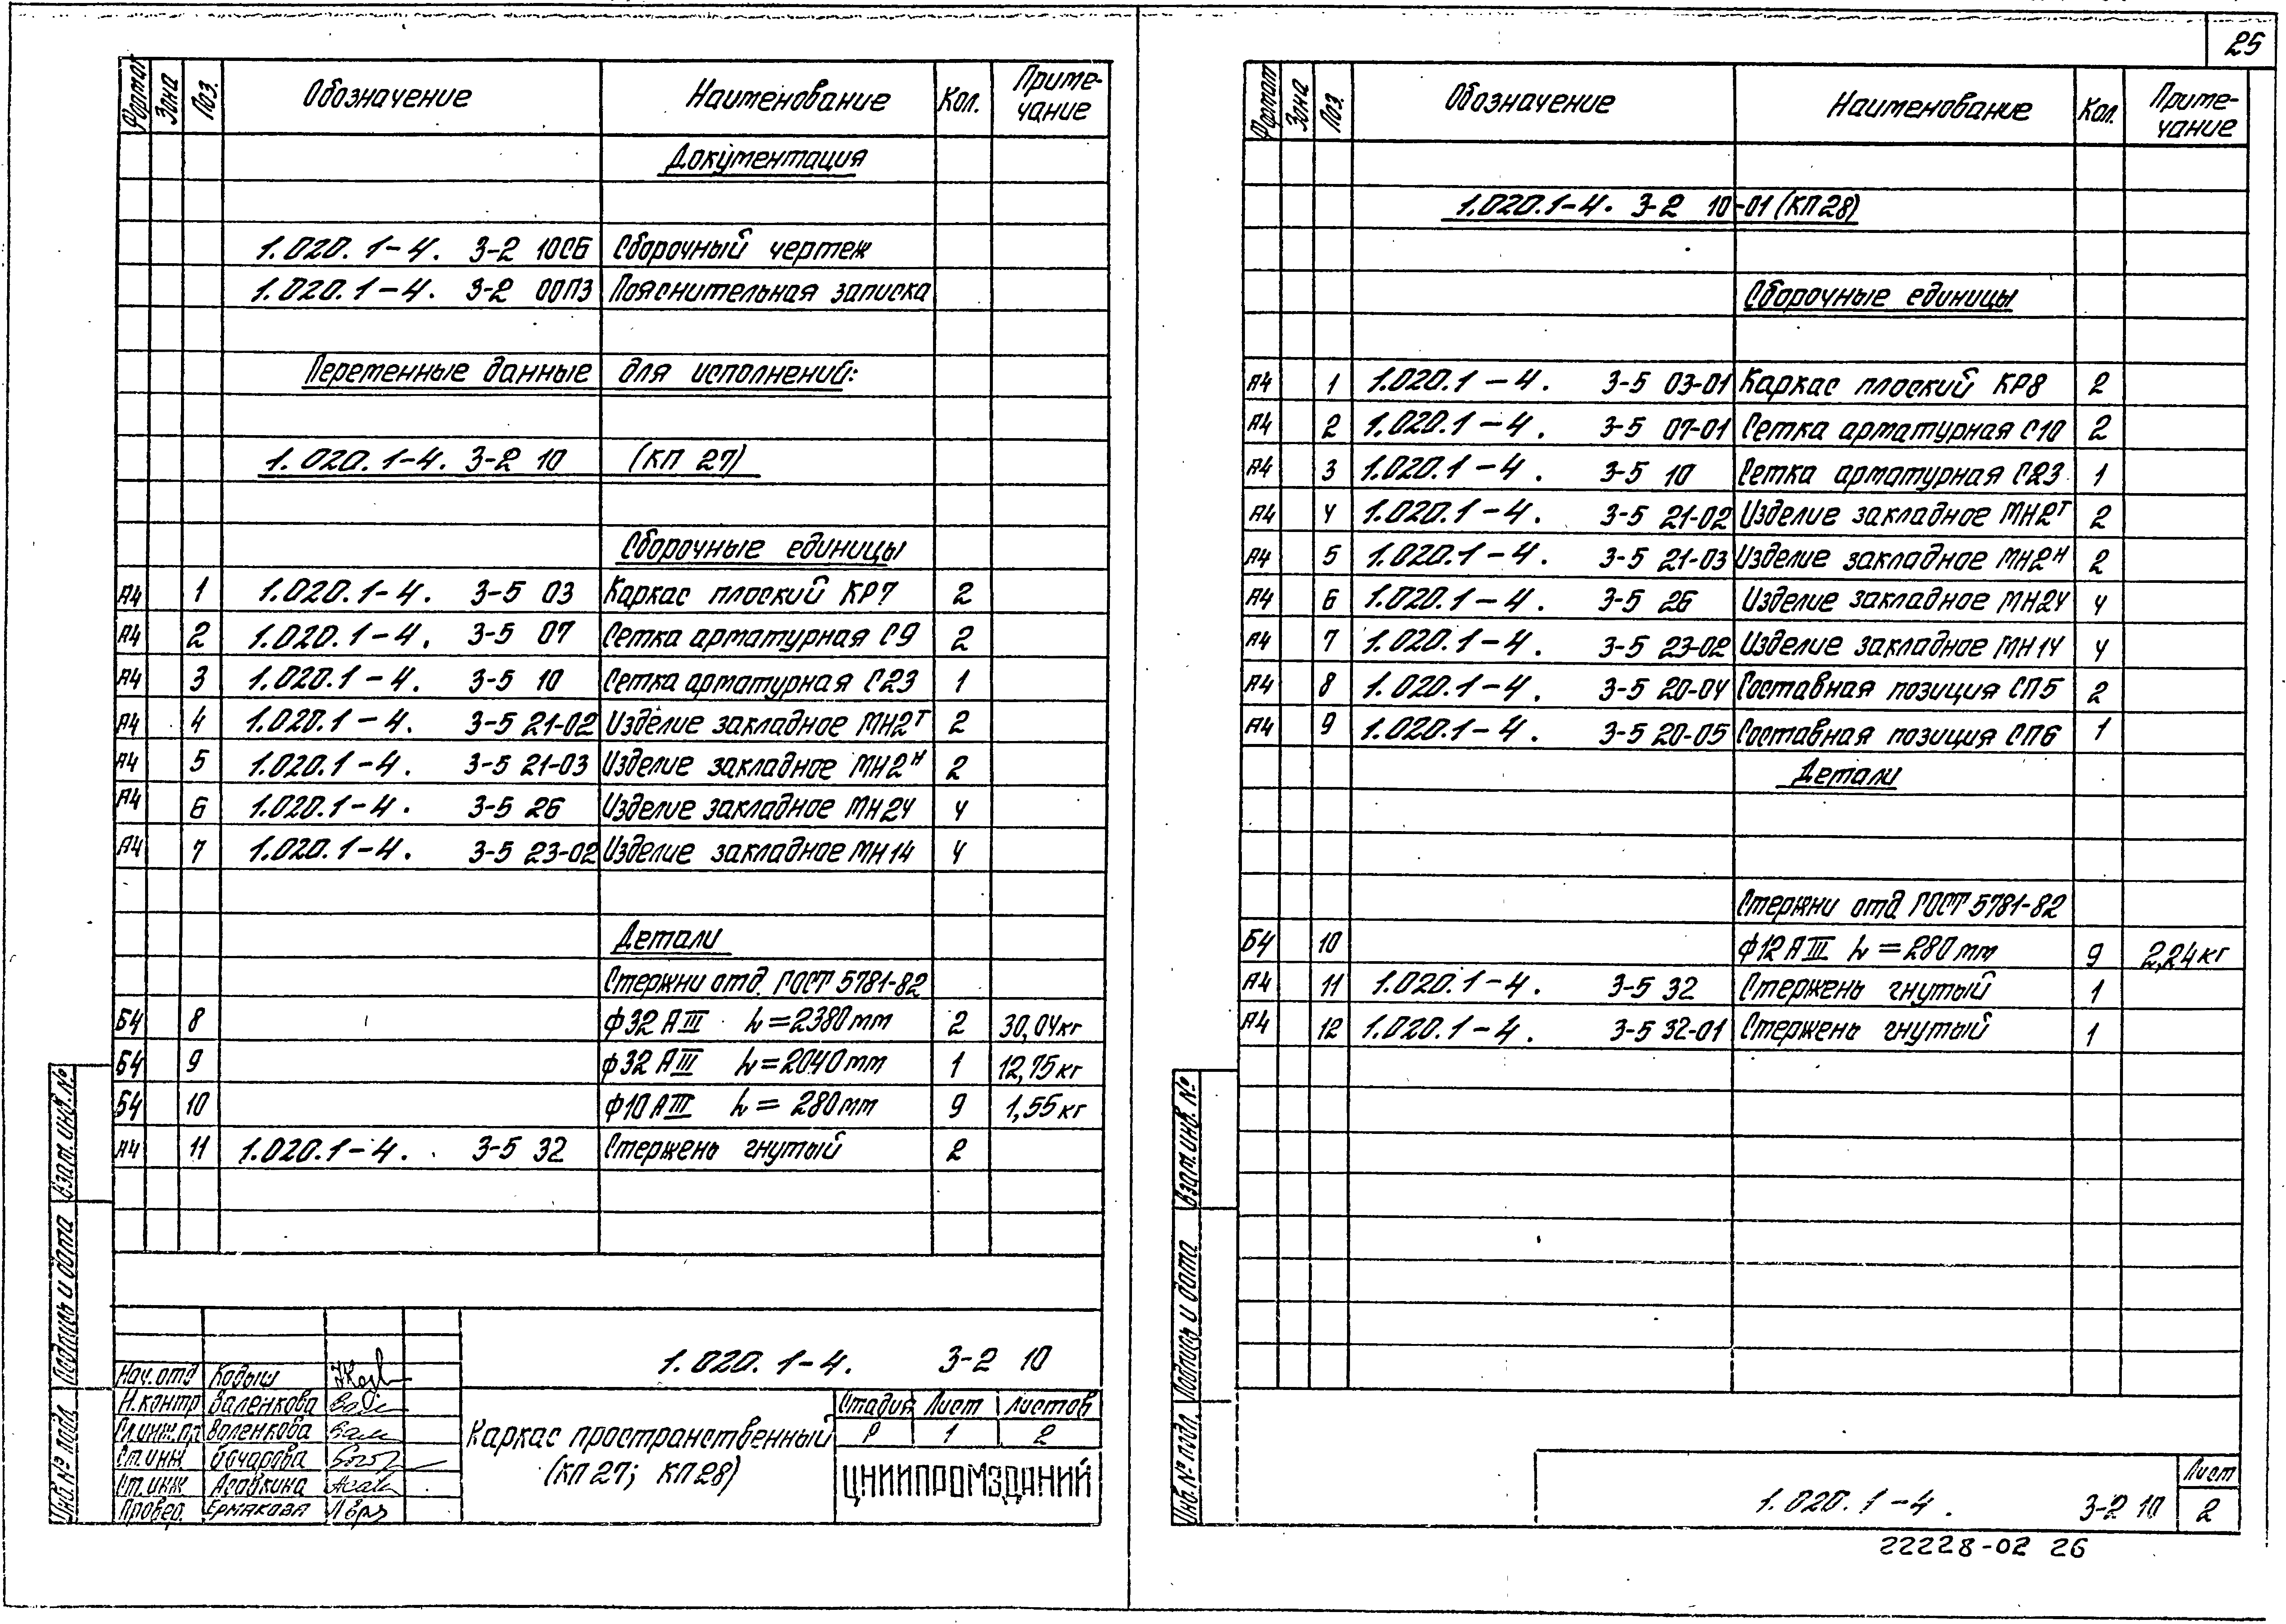 25
Формат Зона Поз. Обозначение Наименование Кол. Приме-чание
Документация
1.020.1-4. 3-2 10СБ Сборочный чертеж
1.020.1-4. 3-2 00ПЗ Пояснительная записка
Переменные данные для исполнений:
1.020.1-4. 3-2 10 (КП 27)
Сборочные единицы
А4 1 1.020.1-4. 3-5 03 Каркас плоский КР7 2
А4 2 1.020.1-4. 3-5 07 Сетка арматурная С9 2
А4 3 1.020.1-4. 3-5 10 Сетка арматурная С23 1
А4 4 1.020.1-4. 3-5 21-02 Изделие закладное МН2т 2
А4 5 1.020.1-4. 3-5 21-03 Изделие закладное МН2н 2
А4 6 1.020.1-4. 3-5 26 Изделие закладное МН24 4
А4 7 1.020.1-4. 3-5 23-02 Изделие закладное МН14 4
Детали
Стержни отд. ГОСТ 5781-82
Б4 8 ф32 АIII L=2380мм 2 30,04кг
Б4 9 ф32 АIII L=2040мм 1 12,75кг
Б4 10 ф10 АIII L= 280мм 9 1,55кг
А4 11 1.020.1-4. 3-5 32 Стержень гнутый 2
Взам. инв. №
Подпись и дата
Инв. № подл.
1.020.1-4. 3-2 10
Нач. отд Кодыш
Н. контр Валенкова
Гл. инж. пр Валенкова
Ст. инж Бочарова
Ст. инж Асавкина
Провер. Ермакова
Каркас пространственный
(КП27; КП28)
Стадия Лист Листов
Р 1 2
ЦНИИПРОМЗДАНИЙ
Формат Зона Поз. Обозначение Наименование Кол. Приме-чание
1.020.1-4. 3-2 10-01 (КП28)
Сборочные единицы
А4 1 1.020.1-4. 3-5 03-01 Каркас плоский КР8 2
А4 2 1.020.1-4. 3-5 07-01 Сетка арматурная С10 2
А4 3 1.020.1-4. 3-5 10 Сетка арматурная С23 1
А4 4 1.020.1-4. 3-5 21-02 Изделие закладное МН2т 2
А4 5 1.020.1-4. 3-5 21-03 Изделие закладное МН2н 2
А4 6 1.020.1-4. 3-5 26 Изделие закладное МН24 4
А4 7 1.020.1-4. 3-5 23-02 Изделие закладное МН14 4
А4 8 1.020.1-4. 3-5 20-04 Составная позиция СП5 2
А4 9 1.020.1-4. 3-5 20-05 Составная позиция СП6 1
Детали
Стержни отд. ГОСТ 5781-82
Б4 10 ф12 АIII L=280мм 9 2,24кг
А4 11 1.020.1-4. 3-5 32 Стержень гнутый 1
А4 12 1.020.1-4. 3-5 32-01 Стержень гнутый 1
Взам. инв. №
Подпись и дата
Инв. № подл.
1.020.1-4. 3-2 10
Лист
2
22228-02 26